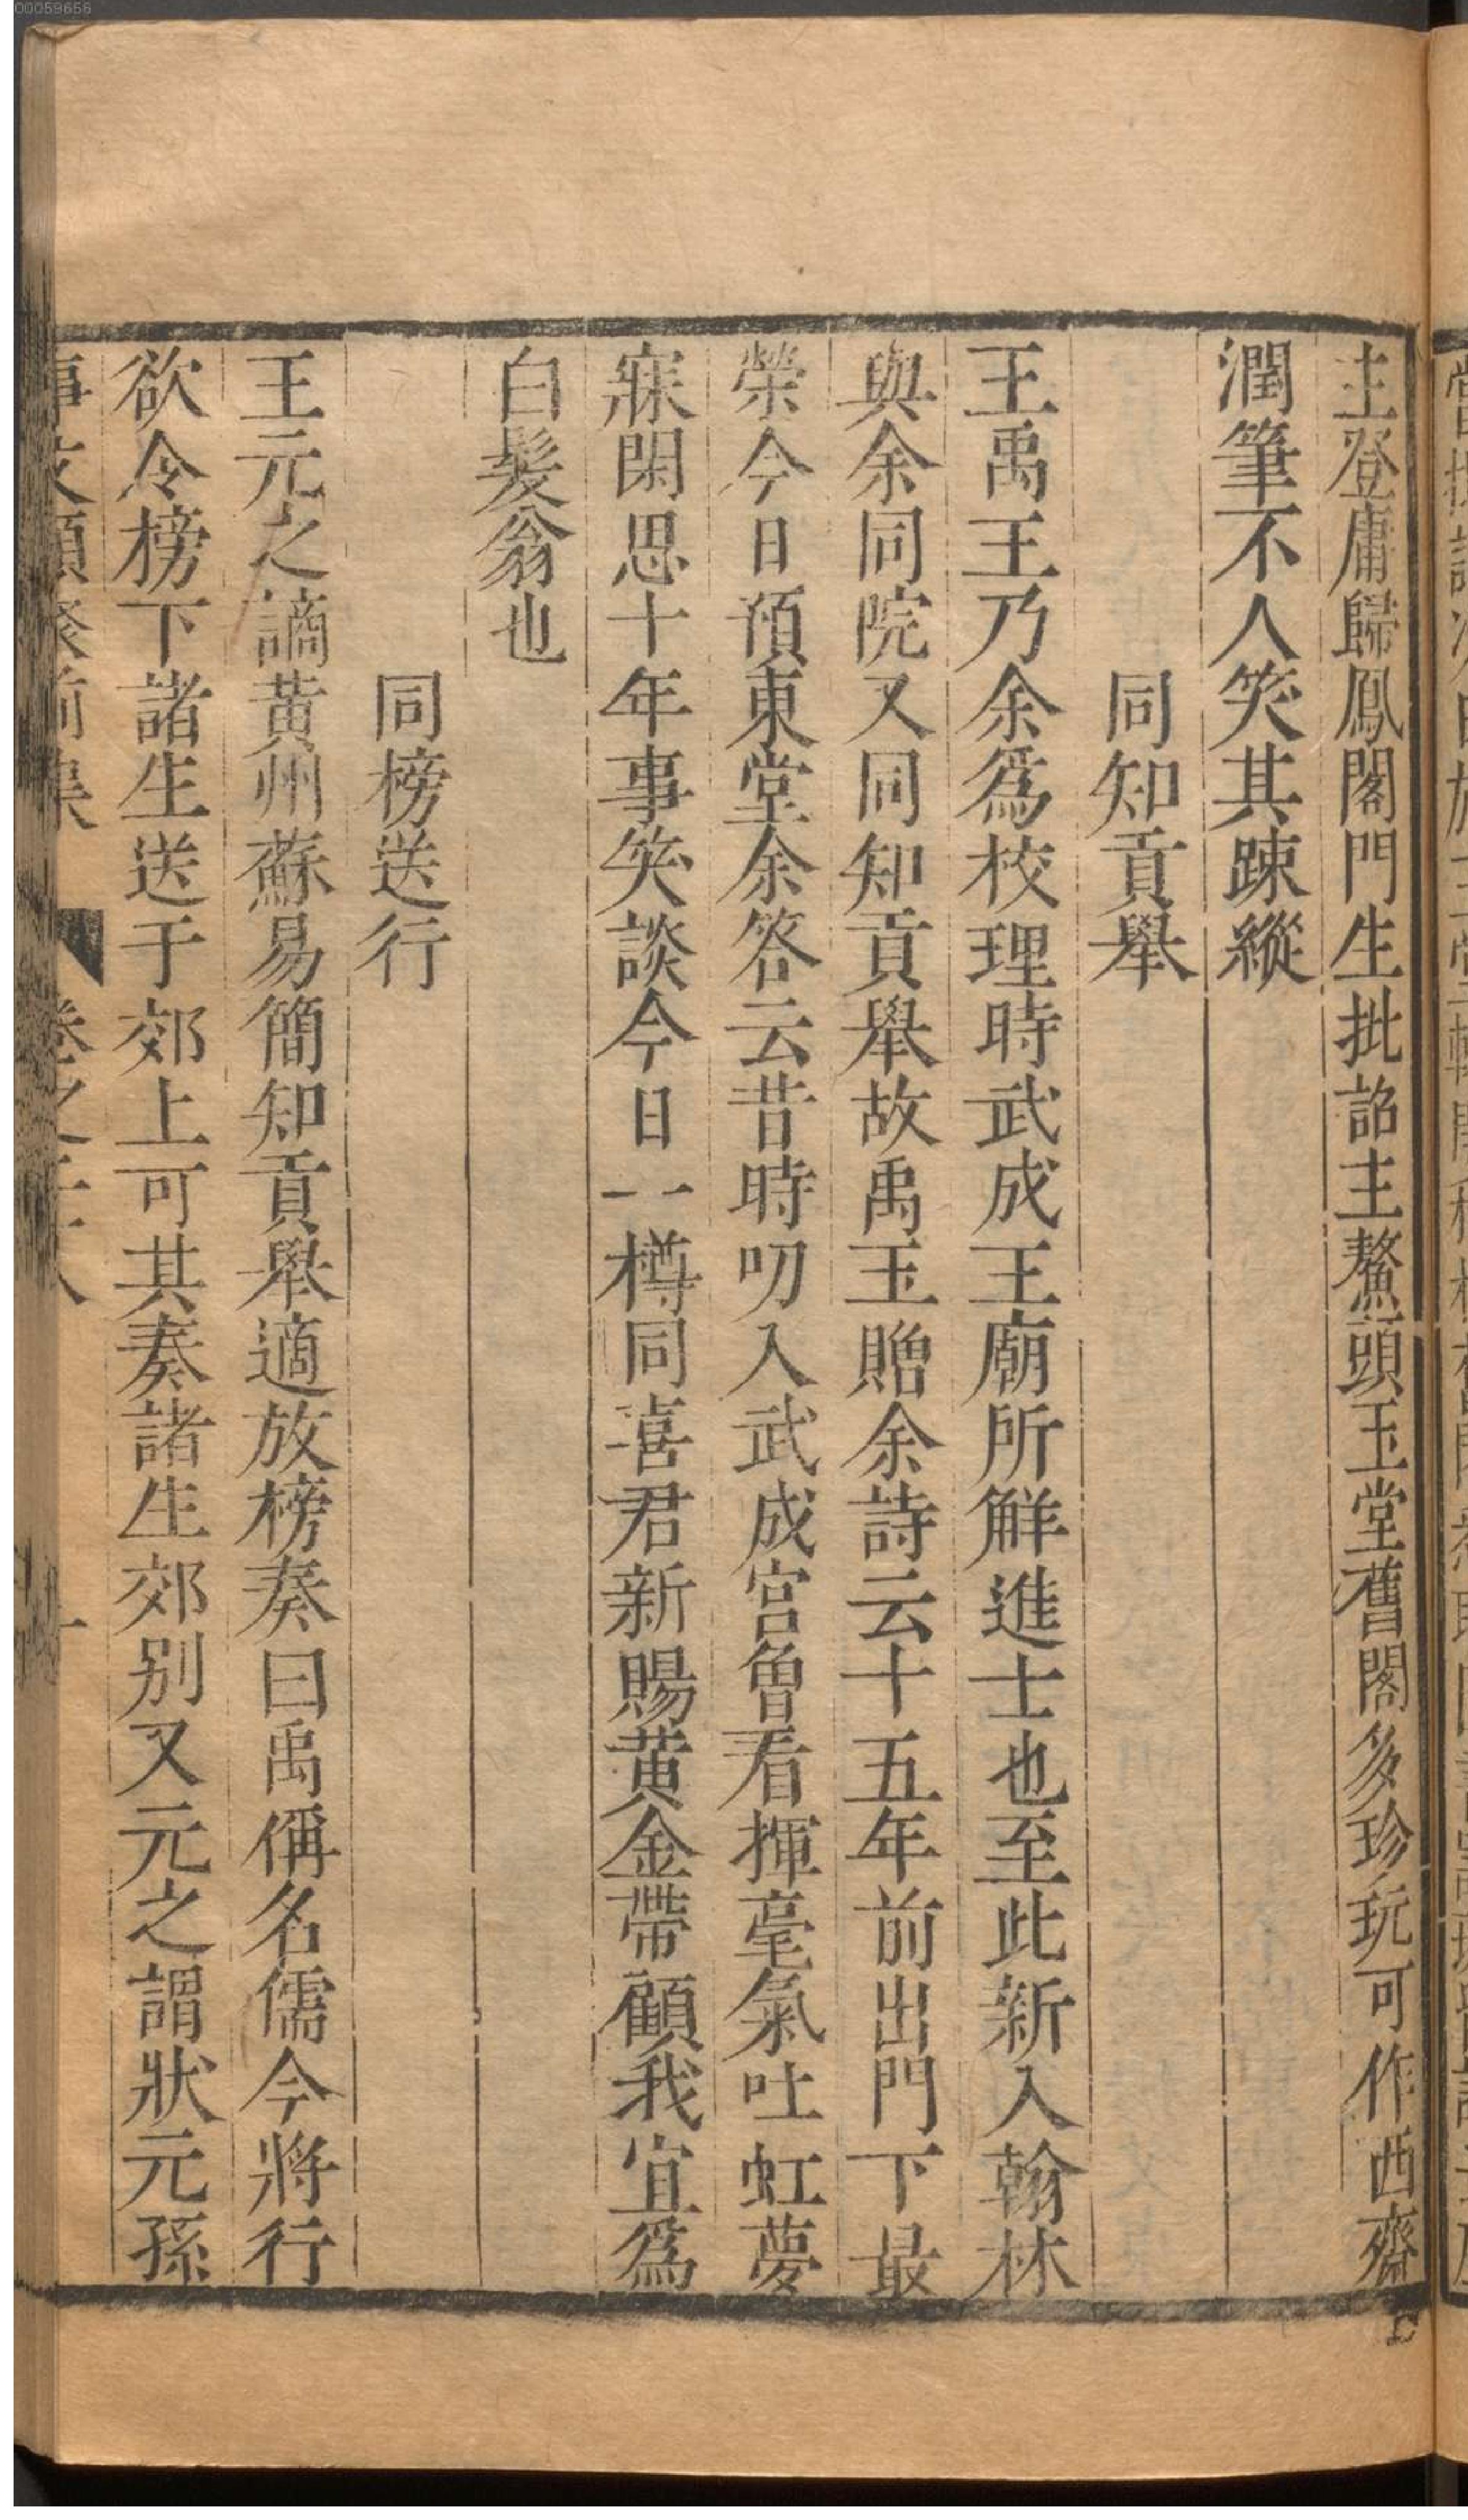 主登庸歸鳳閣門生批詔主鰲頭玉堂舊閣多珍玩可作西齋
潤筆不人笑其踈縱
同知貢舉
王禹王乃余爲校理時武成王廟所觧進士也至此新入翰林
與余同院又同知貢舉故禹玉贈余詩云十五年前出門下最
榮今日預東堂余答云昔時叨入武成宮曾看揮毫氣吐虹夢
寐閑思十年事笑談今日一樽同喜君新賜黄金帶顧我宜爲
白髮翁也
同榜送行
王元之謫黄州蘇易簡知貢舉適放榜奏曰禹偁名儒今將行
欲令榜下諸生送于郊上可其奏諸生郊别又元之謂狀元孫
事文類聚前集 卷之二十八
00059656